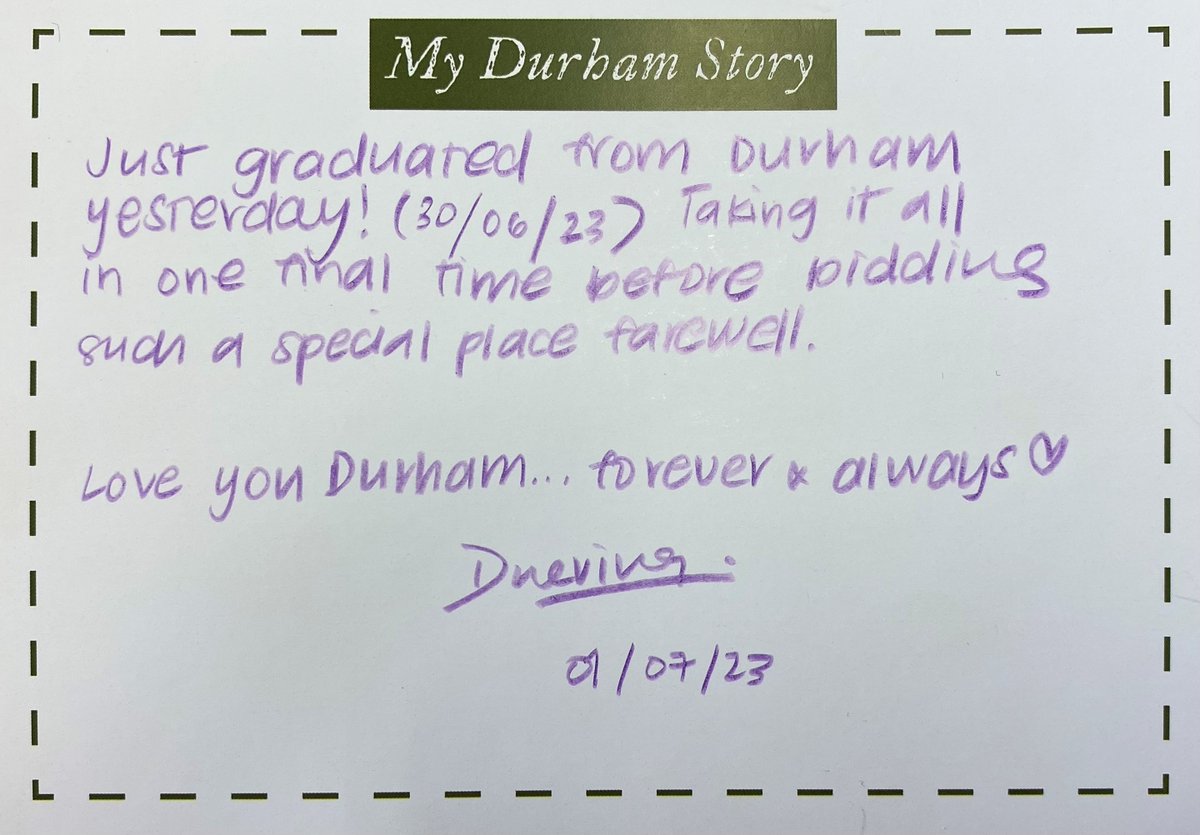 My Durham Story
Just graduated from Durham
yesterday! (30/06/23) Taking it all
in one final time before bidding
such a special place farewell.
Love you Durham... forever & always♡
01/07/23